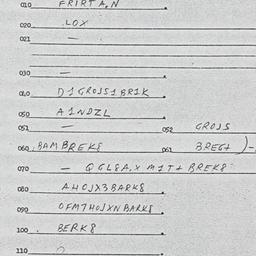 010 FRIRTA,N
020 .LOX
021 —
030 —
040 D1GROSS1BR1K
050 A1NDZL
051 — 052 GROSS
060 .BAMBREK8 061 BREGT )-
070 — QGL8A,X M1T+ BREK8
080 AHOJX3BARK8
090 OFM7HOJXNBARK8
100 . BERK8
110